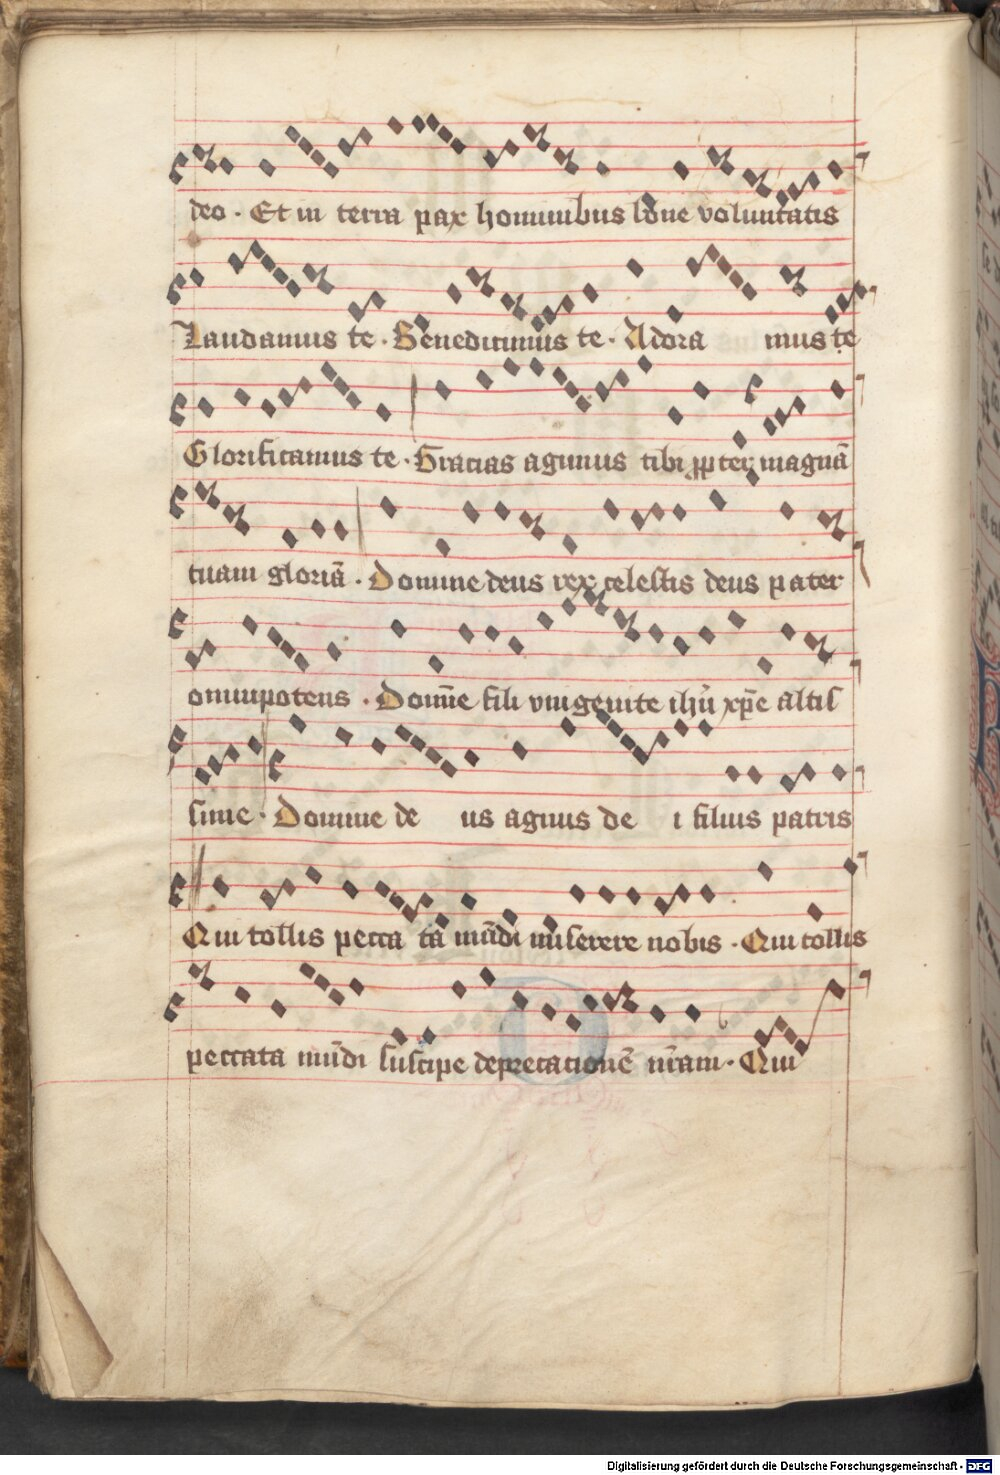 deo · Et in terra pax hominibus bone voluntatis
Laudamus te · Benedicimus te · Adora mus te
Glorificamus te · Gracias agimus tibi ꝓpter magnā
tuam gloriā · Domine deus rex celestis deus pater
omnipotens · Domīe fili vnigenite ihū xp̄e altis
sime · Domine de us agnus de i filius patris
Qui tollis pecca ta mūdi miserere nobis · Qui tollis
peccata mūdi suscipe deprecationē nr̄am · Qui
Digitalisierung gefördert durch die Deutsche Forschungsgemeinschaft - DFG